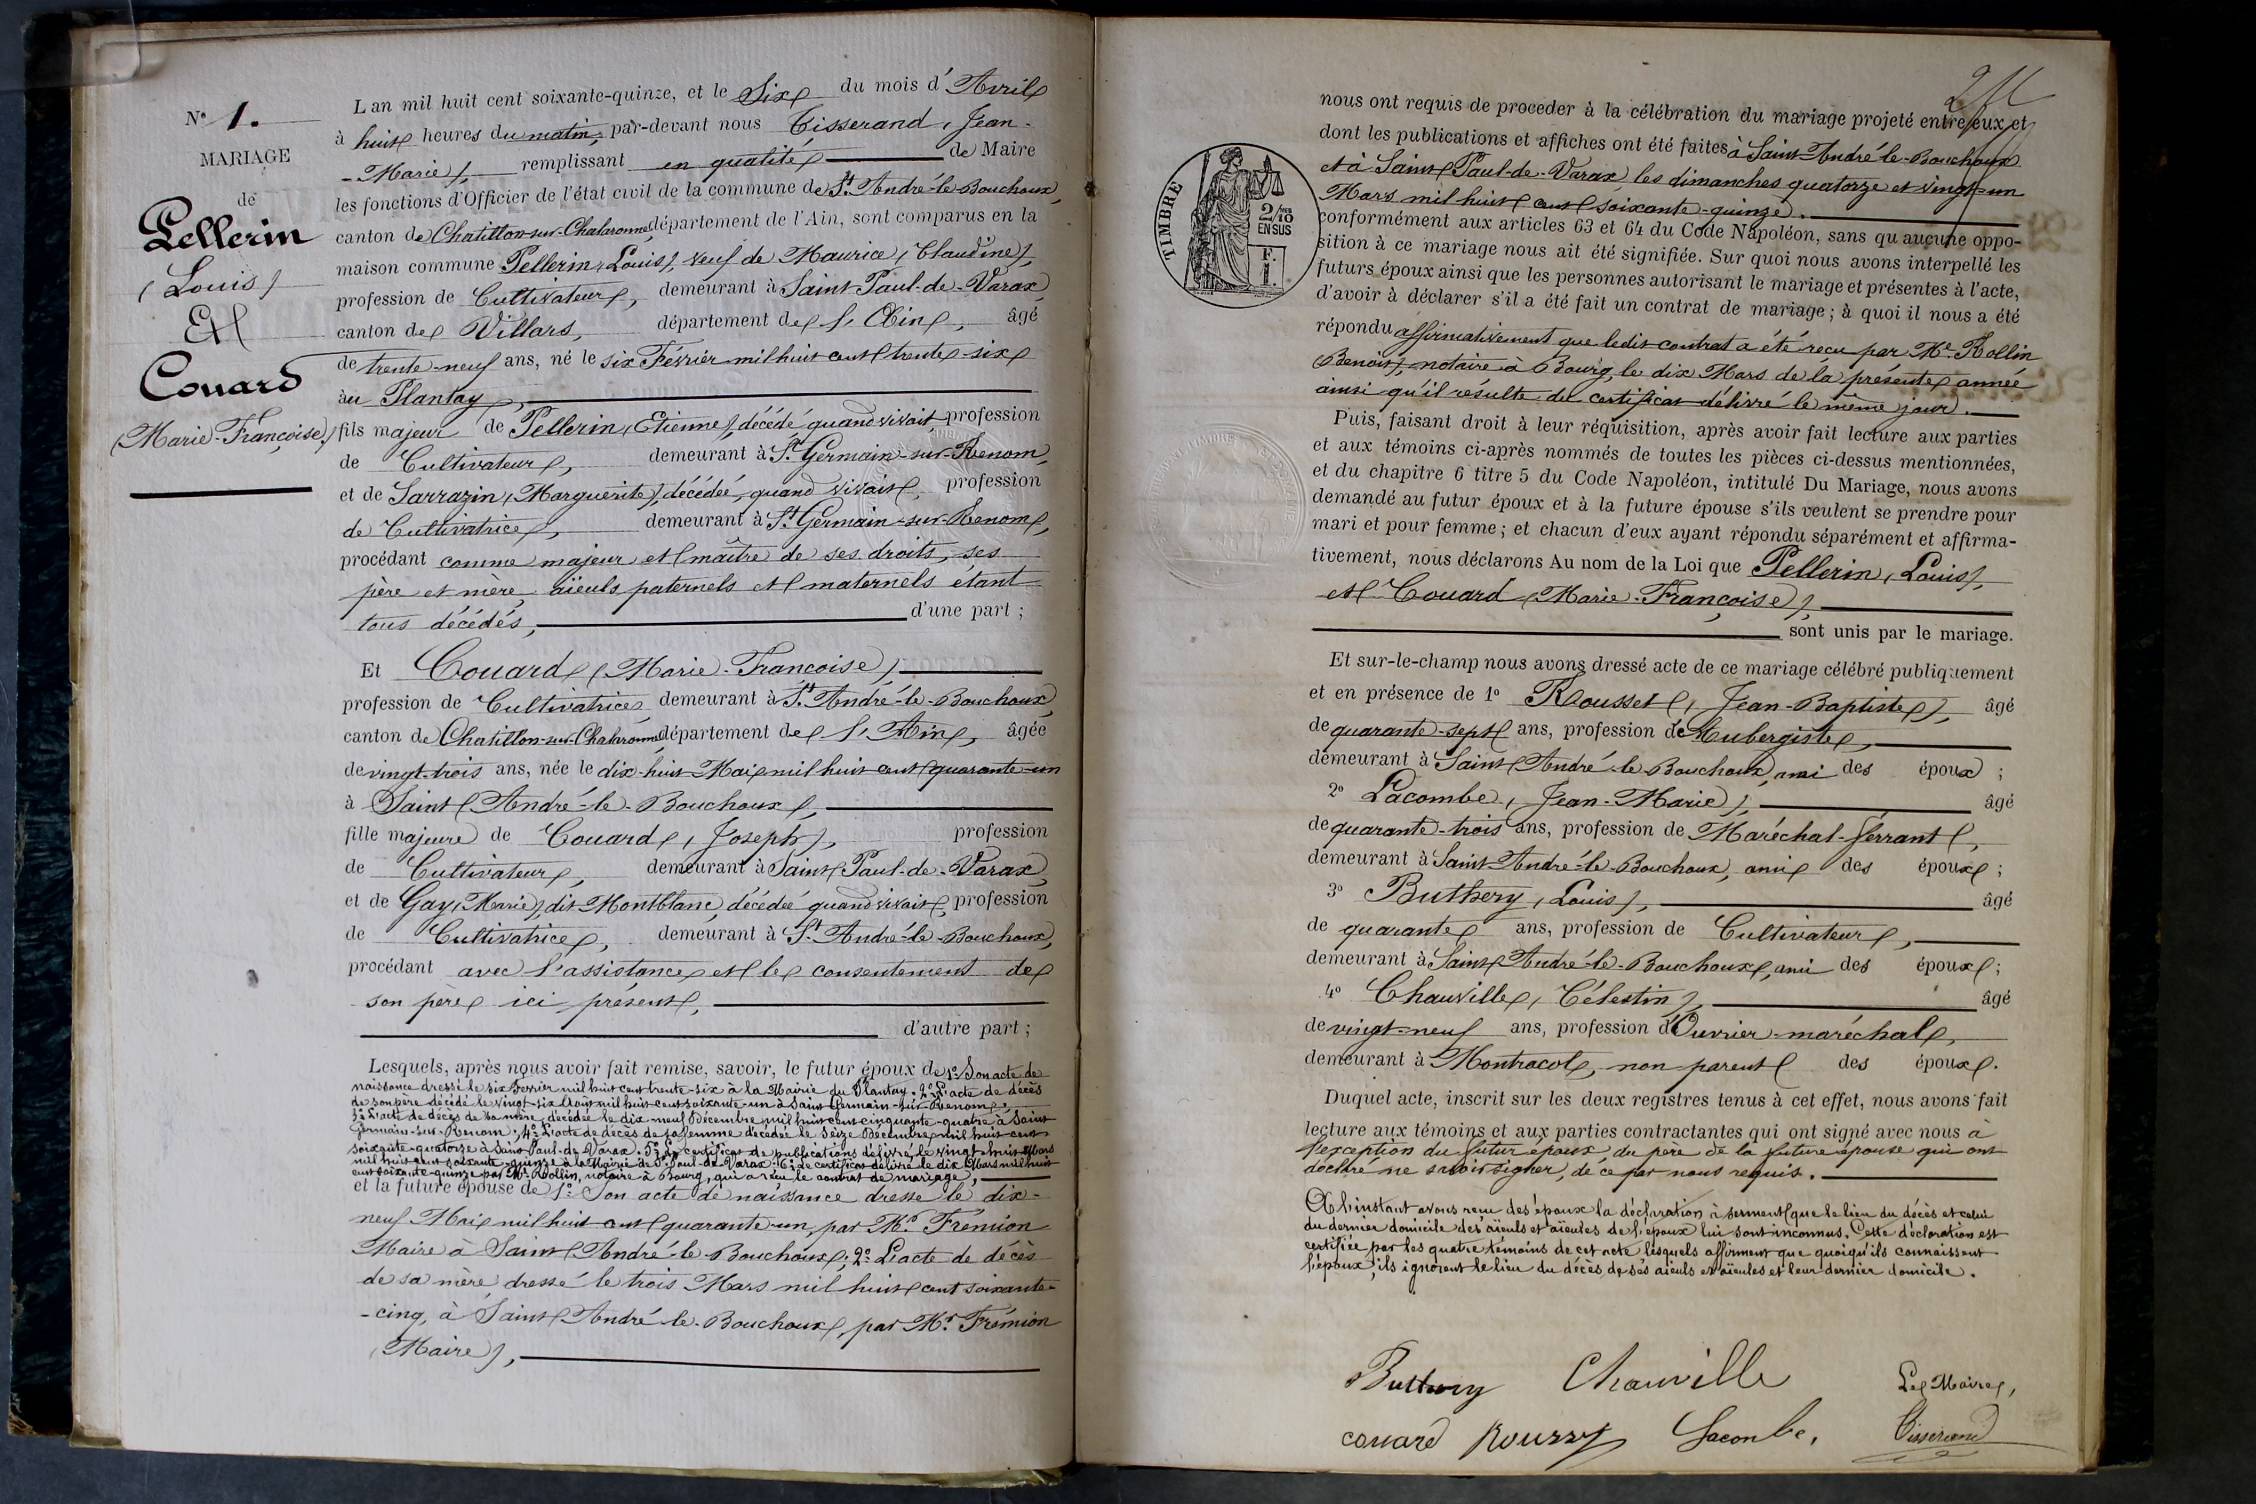 N° 1.
MARIAGE
de
Pellerin
(Louis)
Et
Couard
(Marie-Françoise)
L'an mil huit cent soixante-quinze, et le Six du mois d'Avril
à huit heures du matin, par-devant nous Tisserand, Jean-
-Marie), remplissant en qualité de Maire
les fonctions d'Officier de l'état civil de la commune de St. André-le-Bouchoux,
canton de Chatillon-sur-Chalaronne, département de l'Ain, sont comparus en la
maison commune Pellerin (Louis), veuf de Maurice (Claudine),
profession de Cultivateur, demeurant à Saint-Paul-de-Varax,
canton de Villars, département de l'Ain, âgé
de trente-neuf ans, né le six Février mil huit cent trente-six
au Plantay,
fils majeur de Pellerin (Etienne), décédé quand vivait profession
de Cultivateur, demeurant à St. Germain-sur-Renom,
et de Sarrazin (Marguerite), décédée, quand vivait, profession
de Cultivatrice, demeurant à St. Germain-sur-Renom,
procédant comme majeur et maître de ses droits, ses
père et mère, aïeuls paternels et maternels étant
tous décédés, d'une part ;
Et Couard (Marie-Françoise),
profession de Cultivatrice demeurant à St. André-le-Bouchoux,
canton de Chatillon-sur-Chalaronne, département de l'Ain, âgée
de vingt-trois ans, née le dix-huit Mai mil huit cent quarante-un
à Saint André-le-Bouchoux,
fille majeure de Couard (Joseph), profession
de Cultivateur, demeurant à Saint Paul-de-Varax,
et de Gay (Marie), dit Montblanc, décédée quand vivait, profession
de Cultivatrice, demeurant à St. André-le-Bouchoux,
procédant avec l'assistance et le consentement de
son père ici présent,
d'autre part ;
Lesquels, après nous avoir fait remise, savoir, le futur époux de 1° Son acte de
naissance dressé le six Février mil huit cent trente-six à la Mairie du Plantay. 2° L'acte de décès
de son père décédé le vingt-six Août mil huit cent soixante-un à Saint Germain-sur-Renom;
3° L'acte de décès de sa mère, décédée le dix-neuf Décembre mil huit cent cinquante-quatre à Saint
Germain-sur-Renom; 4° L'acte de décès de sa femme décédée le Seize Décembre mil huit cent
soixante-quatorze à Saint Paul-de-Varax. 5° Le certificat de publications délivré le vingt-huit Mars
mil huit cent soixante-quinze à la Mairie de St. Paul-de-Varax. 6° Le certificat délivré le dix Mars mil huit
cent soixante-quinze par Me. Rollin, notaire à Bourg, qui a reçu le contrat de mariage,
et la future épouse de 1° Son acte de naissance dressé le dix-
neuf Mai mil huit cent quarante-un, par Mr. Frémion
Maire à Saint André-le-Bouchoux; 2° L'acte de décès
de sa mère dressé le trois Mars mil huit cent soixante-
-cinq, à Saint André-le-Bouchoux, par Mr. Frémion
(Maire),
TIMBRE
2/10
EN SUS
F.
1.
nous ont requis de proceder à la célébration du mariage projeté entre eux et
dont les publications et affiches ont été faites à Saint-André-le-Bouchoux
et à Saint Paul-de-Varax les dimanches quatorze et vingt-un
Mars mil huit cent soixante-quinze.
conformément aux articles 63 et 64 du Code Napoléon, sans qu'aucune oppo-
sition à ce mariage nous ait été signifiée. Sur quoi nous avons interpellé les
futurs époux ainsi que les personnes autorisant le mariage et présentes à l'acte,
d'avoir à déclarer s'il a été fait un contrat de mariage ; à quoi il nous a été
répondu affirmativement que ledit contrat a été reçu par Me. Rollin
(Benoit), notaire à Bourg, le dix Mars de la présente année
ainsi qu'il résulte du certificat délivré le même jour.
Puis, faisant droit à leur réquisition, après avoir fait lecture aux parties
et aux témoins ci-après nommés de toutes les pièces ci-dessus mentionnées,
et du chapitre 6 titre 5 du Code Napoléon, intitulé Du Mariage, nous avons
demandé au futur époux et à la future épouse s'ils veulent se prendre pour
mari et pour femme ; et chacun d'eux ayant répondu séparément et affirma-
tivement, nous déclarons Au nom de la Loi que Pellerin (Louis),
et Couard (Marie-Françoise),
sont unis par le mariage.
Et sur-le-champ nous avons dressé acte de ce mariage célébré publiquement
et en présence de 1° Rousset (Jean-Baptiste), âgé
de quarante-sept ans, profession de Aubergiste,
demeurant à Saint André-le-Bouchoux, ami des époux ;
2° Lacombe (Jean-Marie), âgé
de quarante-trois ans, profession de Maréchal-ferrant,
demeurant à Saint-André-le-Bouchoux, ami des époux ;
3° Buthery (Louis), âgé
de quarante ans, profession de Cultivateur,
demeurant à Saint André-le-Bouchoux, ami des époux ;
4° Chauville (Célestin), âgé
de vingt-neuf ans, profession d'Ouvrier-maréchal,
demeurant à Montracol, non parent des époux.
Duquel acte, inscrit sur les deux registres tenus à cet effet, nous avons fait
lecture aux témoins et aux parties contractantes qui ont signé avec nous à
l'exception du futur époux du père de la future épouse qui ont
déclaré ne savoir signer, de ce par nous requis.
A l'instant avons reçu des époux la déclaration à serment que le lieu du décès et celui
du dernier domicile des aïeuls et aïeules de l'époux lui sont inconnus. Cette déclaration est
certifiée par les quatre témoins de cet acte lesquels affirment que quoiqu'ils connaissent
l'époux, ils ignorent le lieu du décès de ses aïeuls et aïeules et leur dernier domicile.
Buthery Chauville Le Maire,
couard Rousset Lacombe. Tisserand